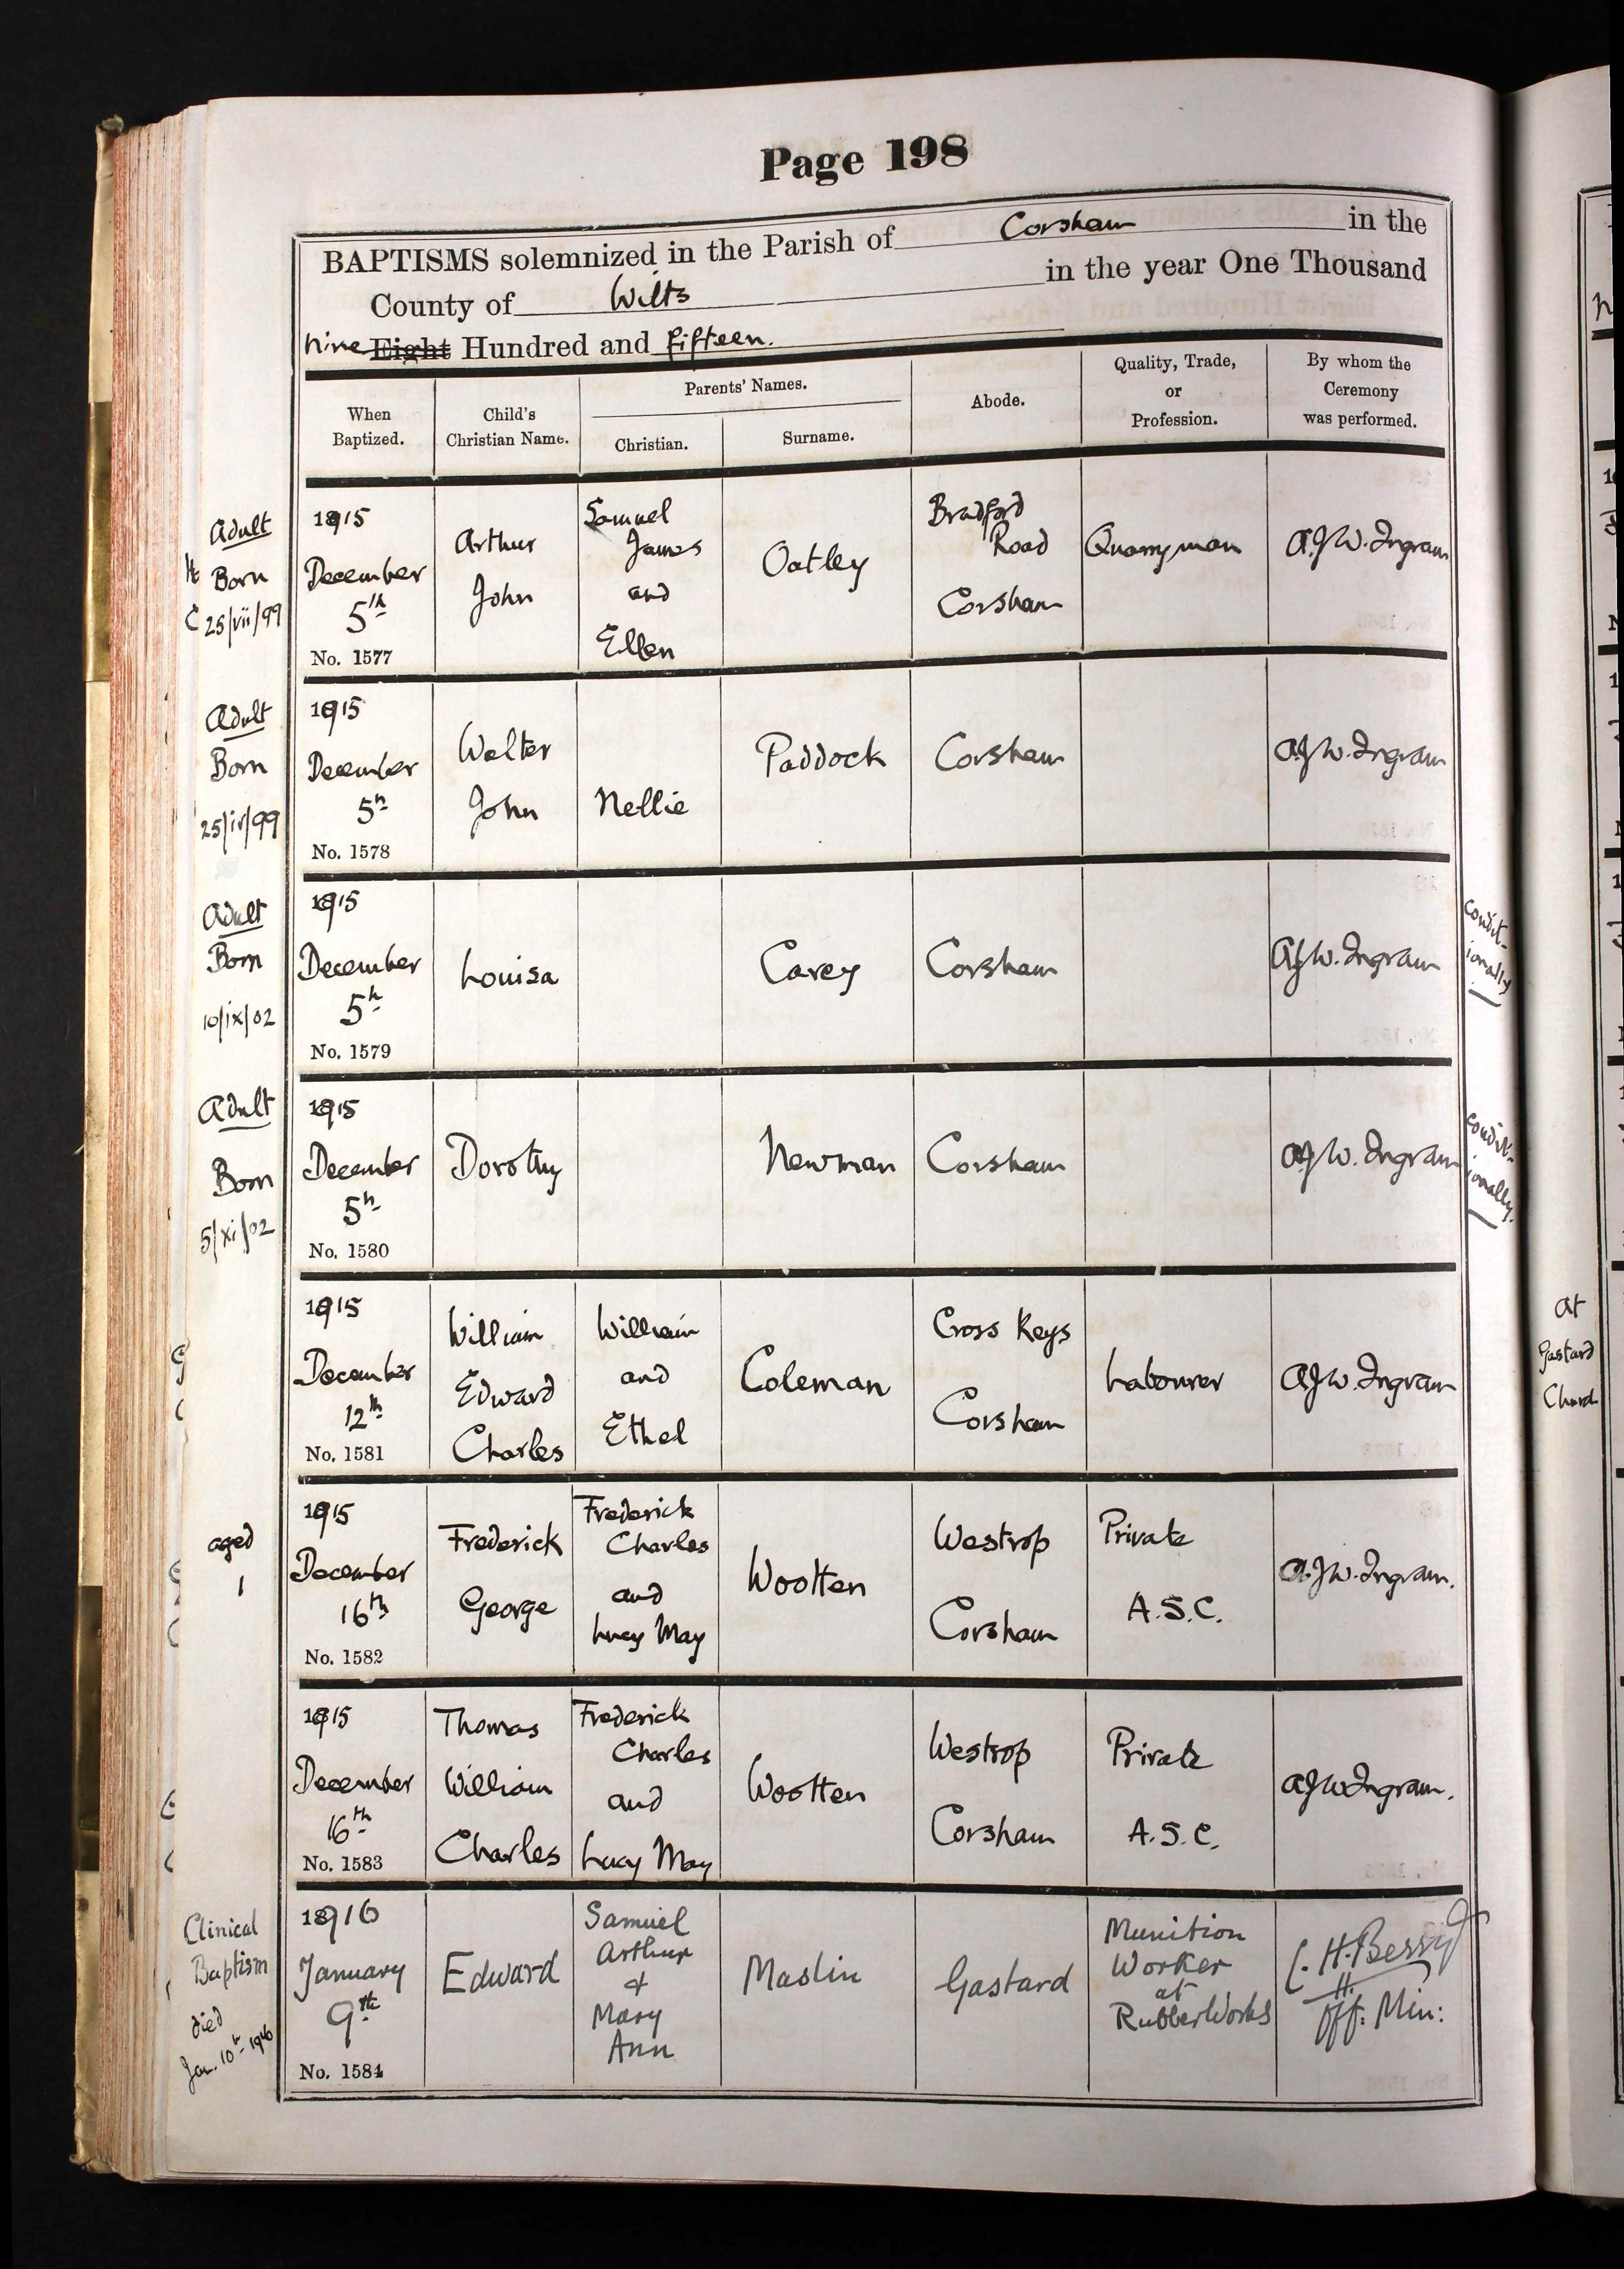 Page 198
BAPTISMS solemnized in the Parish of Corsham in the
County of Wilts in the year One Thousand
nine Eight Hundred and fifteen.
When Baptized.
Child's Christian Name.
Parents' Names.
Christian.
Surname.
Abode.
Quality, Trade, or Profession.
By whom the Ceremony was performed.
Adult
Born
25/vii/99
1915
December
5th
No. 1577
Arthur
John
Samuel
James
and
Ellen
Oatley
Bradford
Road
Corsham
Quarryman
A.J.W. Ingram
Adult
Born
25/iv/99
1915
December
5th
No. 1578
Walter
John
Nellie
Paddock
Corsham
A.J.W. Ingram
Adult
Born
10/ix/02
1915
December
5th
No. 1579
Louisa
Carey
Corsham
A.J.W. Ingram
condit-
ionally
Adult
Born
5/xi/02
1915
December
5th
No. 1580
Dorothy
Newman
Corsham
A.J.W. Ingram
condit-
ionally.
1915
December
12th
No. 1581
William
Edward
Charles
William
and
Ethel
Coleman
Cross Keys
Corsham
Labourer
A.J.W. Ingram
At
Gastard
Church
aged
1
1915
December
16th
No. 1582
Frederick
George
Frederick
Charles
and
Lucy May
Wootten
Westrop
Corsham
Private
A.S.C.
A.J.W. Ingram.
1915
December
16th
No. 1583
Thomas
William
Charles
Frederick
Charles
and
Lucy May
Wootten
Westrop
Corsham
Private
A.S.C.
A.J.W. Ingram.
Clinical
Baptism
died
Jan. 10th 1916
1916
January
9th
No. 1584
Edward
Samuel
Arthur
&
Mary
Ann
Maslin
Gastard
Munition
Worker
at
Rubber Works
C. H. Berry
Off: Min: